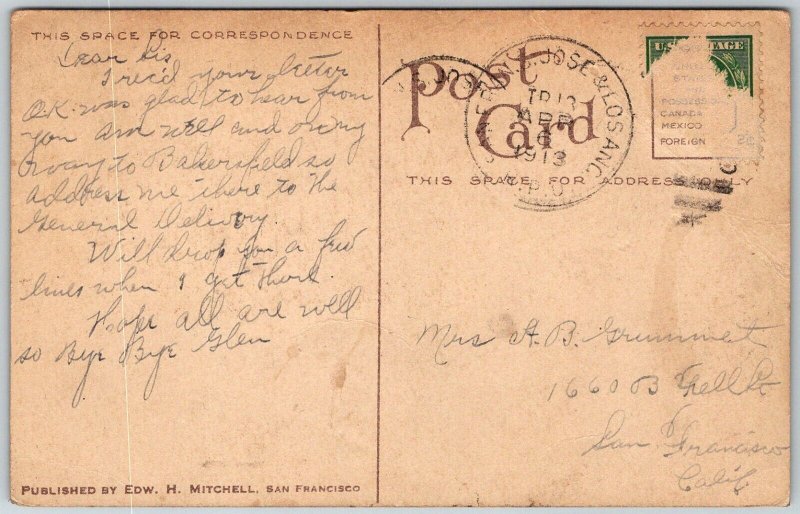 THIS SPACE FOR CORRESPONDENCE
Dear Sis
I rec'd your letter
O.K. was glad to hear from
you am well and on my
way to Bakersfield so
address me there to the
General Delivery.
Will drop you a few
lines when I get there.
Hope all are well
so Bye Bye Glen
PUBLISHED BY EDW. H. MITCHELL, SAN FRANCISCO
Post
Card
JOSE & LOS ANG
TR 13
APR
6
1913
R.P.O.
U.S. POSTAGE
CANADA
MEXICO
FOREIGN
THIS SPACE FOR ADDRESS ONLY
Mrs A. B. Grummet
1660 B Fell St
San Francisco
Calif